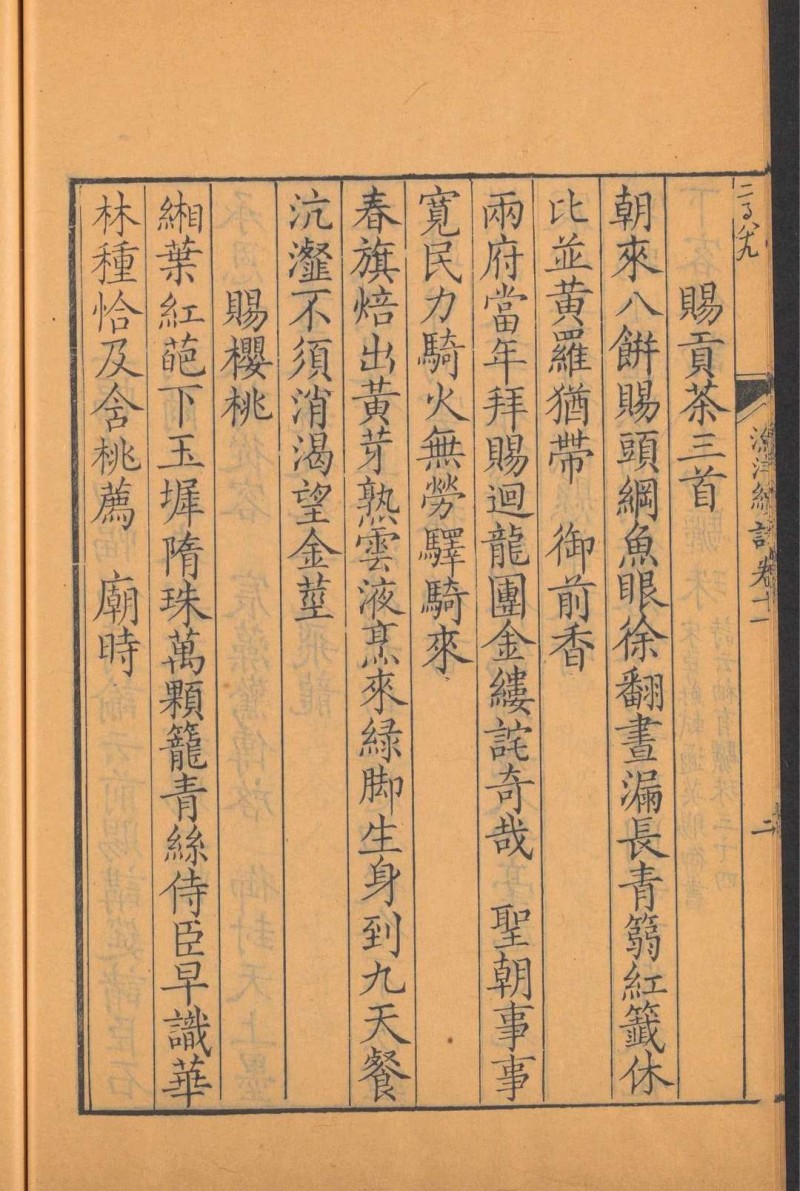 賜貢茶三首
朝來八餅賜頭綱魚眼徐翻晝漏長青篛紅籤休
比並黃羅猶帶　御前香
兩府當年拜賜迴龍團金縷詫奇哉　聖朝事事
寬民力騎火無勞驛騎來
春旗焙出黃芽熟雲液烹來綠脚生身到九天餐
沆瀣不須消渴望金莖
賜櫻桃
緗葉紅葩下玉墀隋珠萬顆籠青絲侍臣早識華
林種恰及含桃薦　廟時